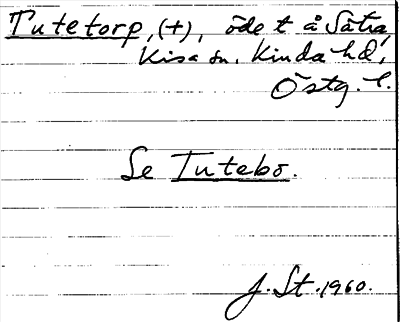 Tutetorp, (+), öde t å Sätra,
Kisa sn. Kinda hd,
Östg. l.
Se Tutebo.
J. St. 1960.